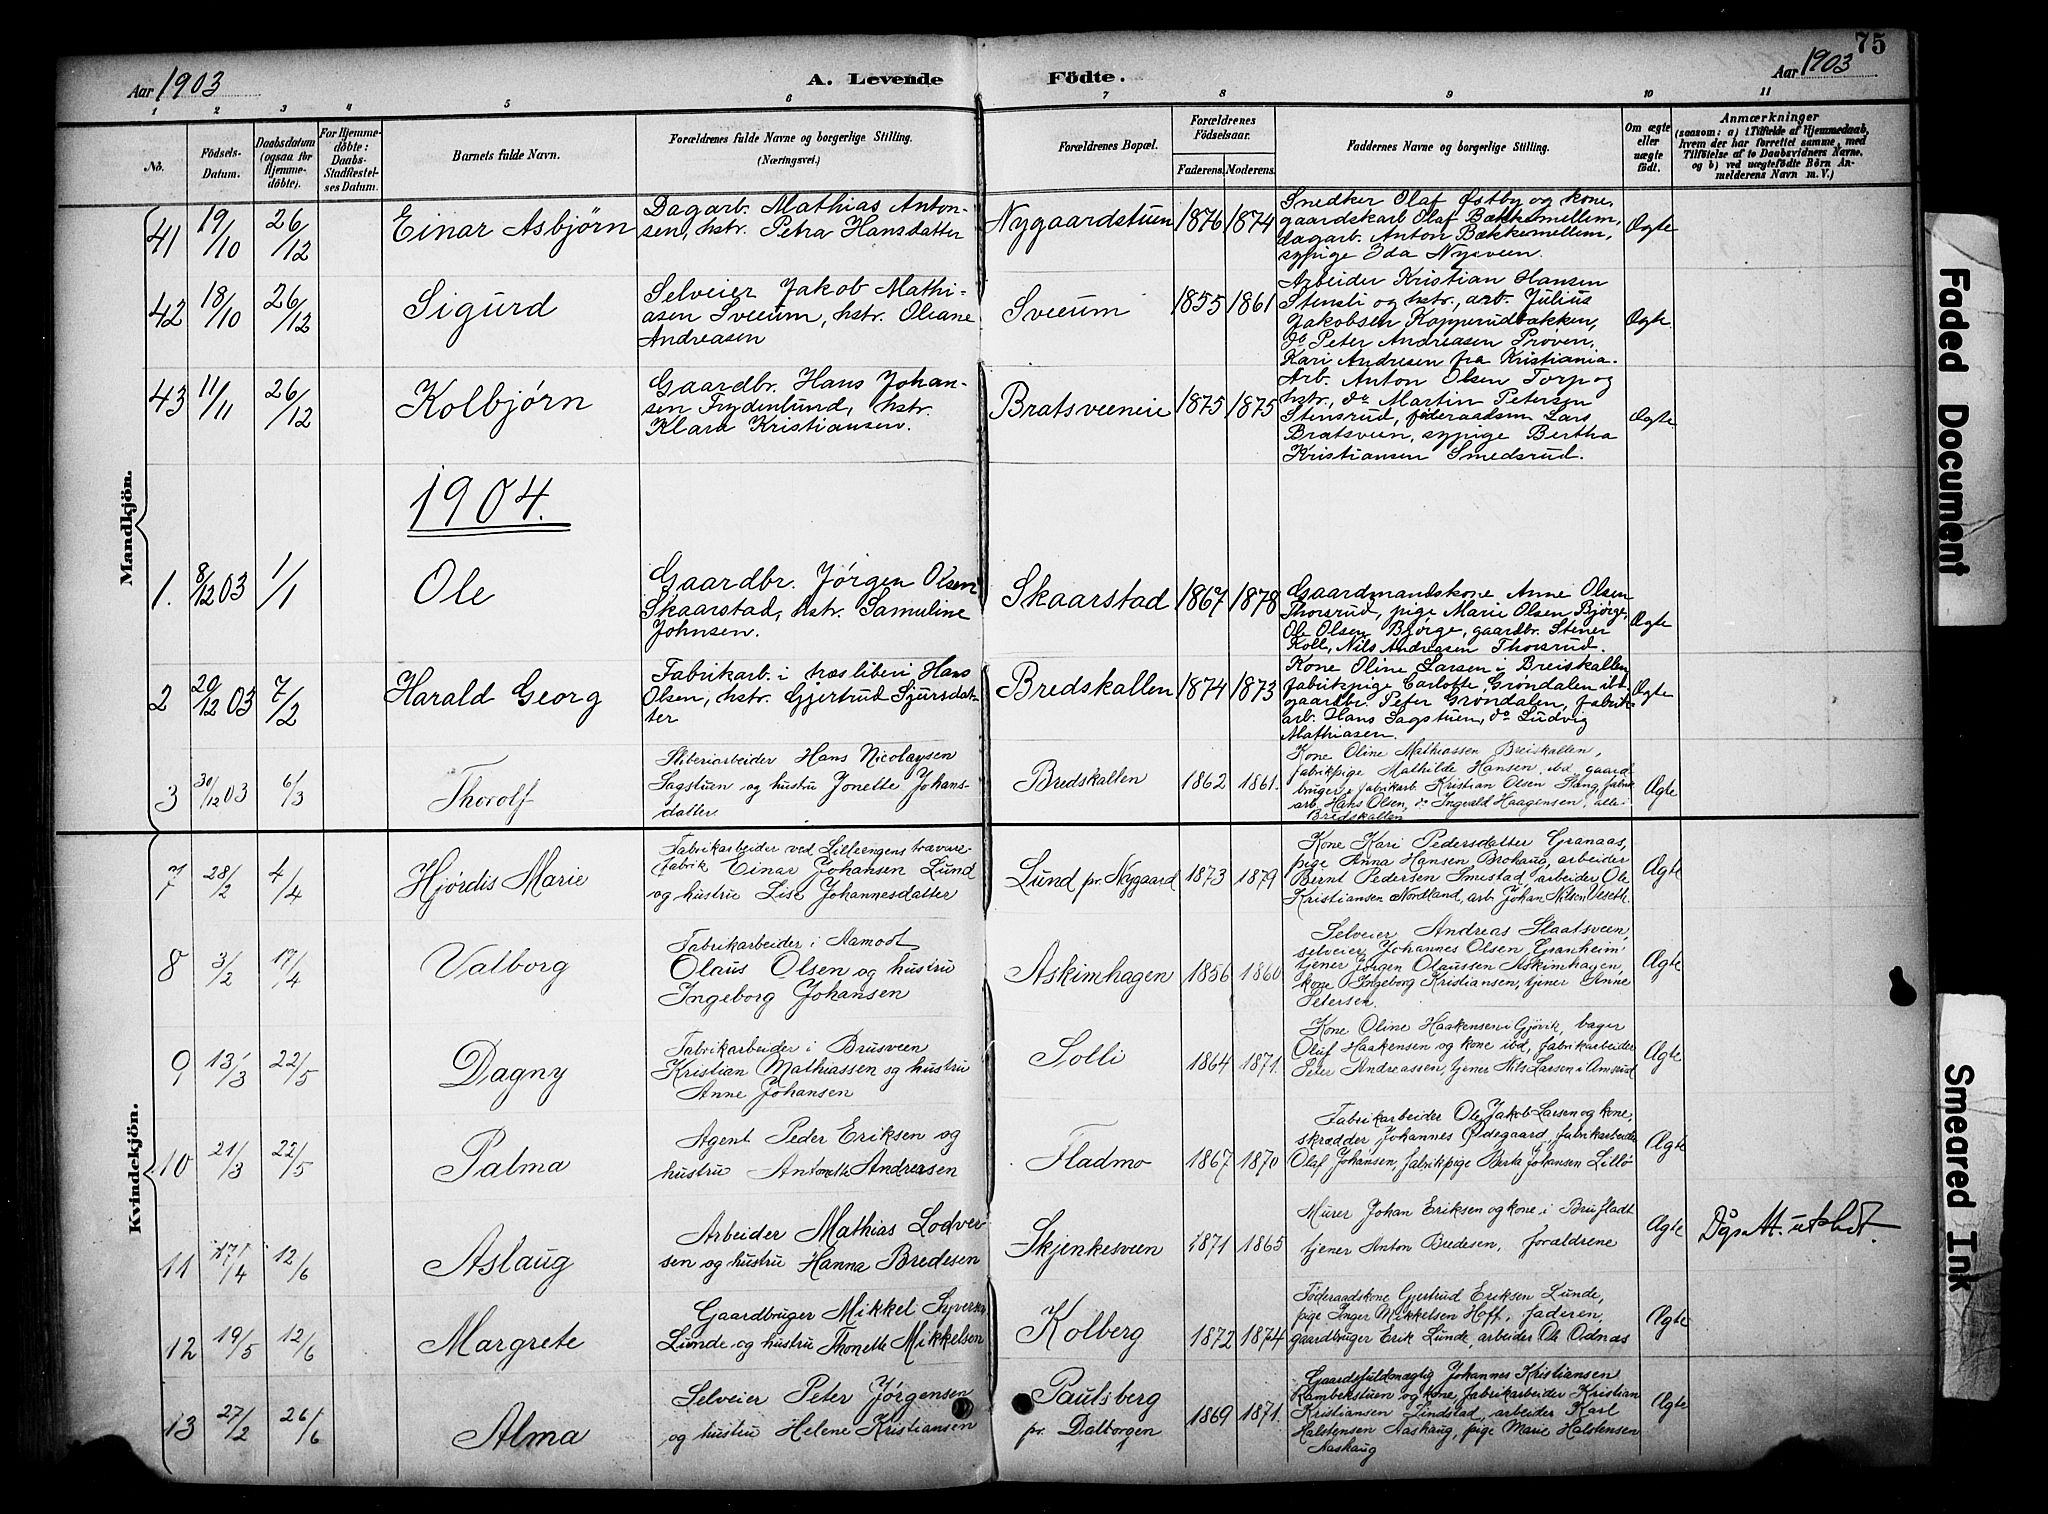 75
Aar 1903
A. Levende Födte.
Aar 1903
1 2 3 4 5 6 7 8 9 10 11
No.
Födsels-Datum.
Daabsdatum (ogsaa for Hjemmedöbte).
For Hjemmedöbte: Daabs-Stadfestelses Datum.
Barnets fulde Navn.
Forældrenes fulde Navne og borgerlige Stilling. (Næringsvei.)
Forældrenes Bopæl.
Forældrenes Födselsaar.
Faderens. Moderens.
Faddernes Navne og borgerlige Stilling.
Om ægte eller uægte födt.
Anmærkninger
(saasom: a) i Tilfælde af Hjemmedaab, hvem der har forrettet samme, med Tilföielse af to Daabsvidners Navne, og b) ved uægtefödte Börn Anmelderens Navn m. V.)
Mandkjön.
41 19/10 26/12 Einar Asbjørn
Dagarb. Mathias Anton-
sen, hstr. Petra Hansdatter
Nygaardstuen 1876 1874
Smedker Olaf Østby og kone,
gaardskarb Olaf Bækkemellem,
dagarb. Anton Bækkemellem,
sypige Ida Nysveen.
Ægte
42 18/10 26/12 Sigurd
Selveier Jakob Mathi-
asen Sveum, hstr. Oleane
Andreasen
Sveum 1855 1861
Arbeider Kristian Hansen
Stensli og hstr., arb. Julius
Jakobsen Kopperudbakken,
do Peter Andreasen Prøven,
Kari Andresen fra Kristiania.
Ægte.
43 11/11 26/12 Kolbjørn
Gaardbr. Hans Johan-
sen Frydenlund, hstr.
Klara Kristiansen.
Bratsveeneie 1875 1875
Arb. Anton Olsen Torp og
hstr., do Martin Petersen
Stensrud, föderaadsm Lars
Bratsveen, sypige Bertha
Kristiansen Smedsrud.
Ægte
1904.
1. 8/12 03 1/1 Ole
Gaardbr. Jörgen Olsen
Skaarstad, hstr. Samuline
Johnsen.
Skaarstad 1867 1878
Gaardmandskone Anne Olsen
Thorsrud, pige Marie Olsen Bjørge,
Ole Olsen Bjørge, gaardbr. Stener
Koll, Nils Andreasen Thorsrud.
Ægte
2 20/12 03 7/2 Harald Georg
Fabrikarb. i træsliberi Hans
Olsen, hstr. Gjertrud Sjursdat-
ter
Bredskallen 1874 1873
Kone Oline Larsen i Breiskallen
fabrikpige Carlotte Grøndalen ibd.
gaardbr. Peter Grøndalen, fabrik-
arb. Hans Sagstuen, do Ludvig
Mathiasen.
Ægte
3 30/12 03 6/3 Thorolf
Sliberiarbeider Hans Nicolaysen
Sagstuen og hustru Jonette Johans-
datter
Bredskallen 1862 1861.
Kone Oline Mathiassen Breiskallen,
fabrikpige Mathilde Hansen ibd, gaard
bruger, fabrikarb. Kristian Olsen Stang, fabrik
arb. Hans Olsen, do Ingvald Haagensen, alle i
Bredskallen
Ægte
Kvindekjön.
7 28/2 4/4 Hjørdis Marie
Fabrikarbeider ved Lilleengens trævare-
fabrik Einar Johansen Lund
og hustru Lise Johannesdatter
Lund pr. Nygaard 1873 1879
Kone Kari Pedersdatter Granaas,
pige Anna Hansen Brohaug, arbeider
Bernt Pedersen Smestad, arbeider Ole
Kristiansen Nordland, arb Johan Nilsen Ulseth.
Ægte
8 3/2 17/4 Valborg
Fabrikarbeider i Aamodt
Olaus Olsen og hustru
Ingeborg Johansen
Askimhagen 1856 1860
Selveier Andreas Slaatsveen,
selveier Johannes Olsen Granheim
tjener Jørgen Olaussen Askimhagen,
kone Ingeborg Kristiansen, tjener Anne
Petersen.
Ægte
9 13/3 22/5 Dagny
Fabrikarbeider i Brusveen
Kristian Mathiassen og hustru
Anne Johansen
Solli 1864 1871.
Kone Oline Haakensen i Gjøvik, bager
Oluf Haakensen og kone ibd, fabrikarbeider
Peter Andreassen, tjener Nils Larsen i Amsrud
Ægte
10 21/3 22/5 Palma
Agent Peder Eriksen og
hustru Antonette Andreasen
Fladmo 1867 1870
Fabrikarbeider Ole Jakob Larsen og kone,
skrædder Johannes Ødegaard, fabrikarbeider
Olaf Johansen, fabrikpige Berta Johansen Lillo
Ægte
11 17/4 12/6 Aslaug
Arbeider Mathias Lodver-
sen og hustru Hanna Bredesen
Skjenkesveen 1871 1865
Murer Johan Eriksen og kone i Brufladt
tjener Anton Bredesen, forældrene
Ægte
12 19/5 12/6 Margrete
Gaardbruger Mikkel Syversen
Lunde og hustru Thonette Mikkelsen
Kolberg 1872 1874
Föderaadskone Gjertrud Eriksen Lunde,
pige Inger Mikkelsen Hoff, faderen,
gaardbruger Erik Lunde, arbeider Ole Odnæs
Ægte
13 27/2 26/6 Alma
Selveier Peter Jørgensen
og hustru Helene Kristiansen
Paulsberg
pr. Dalborgen 1869 1871.
Gaardsfuldmægtig Johannes Kristiansen
Rambekstuen og kone, fabrikarbeider Kristian
Kristiansen Lindstad, arbeider Karl
Halstensen Aashaug, pige Marie Halstensen
Aashaug
Ægte
Faded Document
Smeared Ink